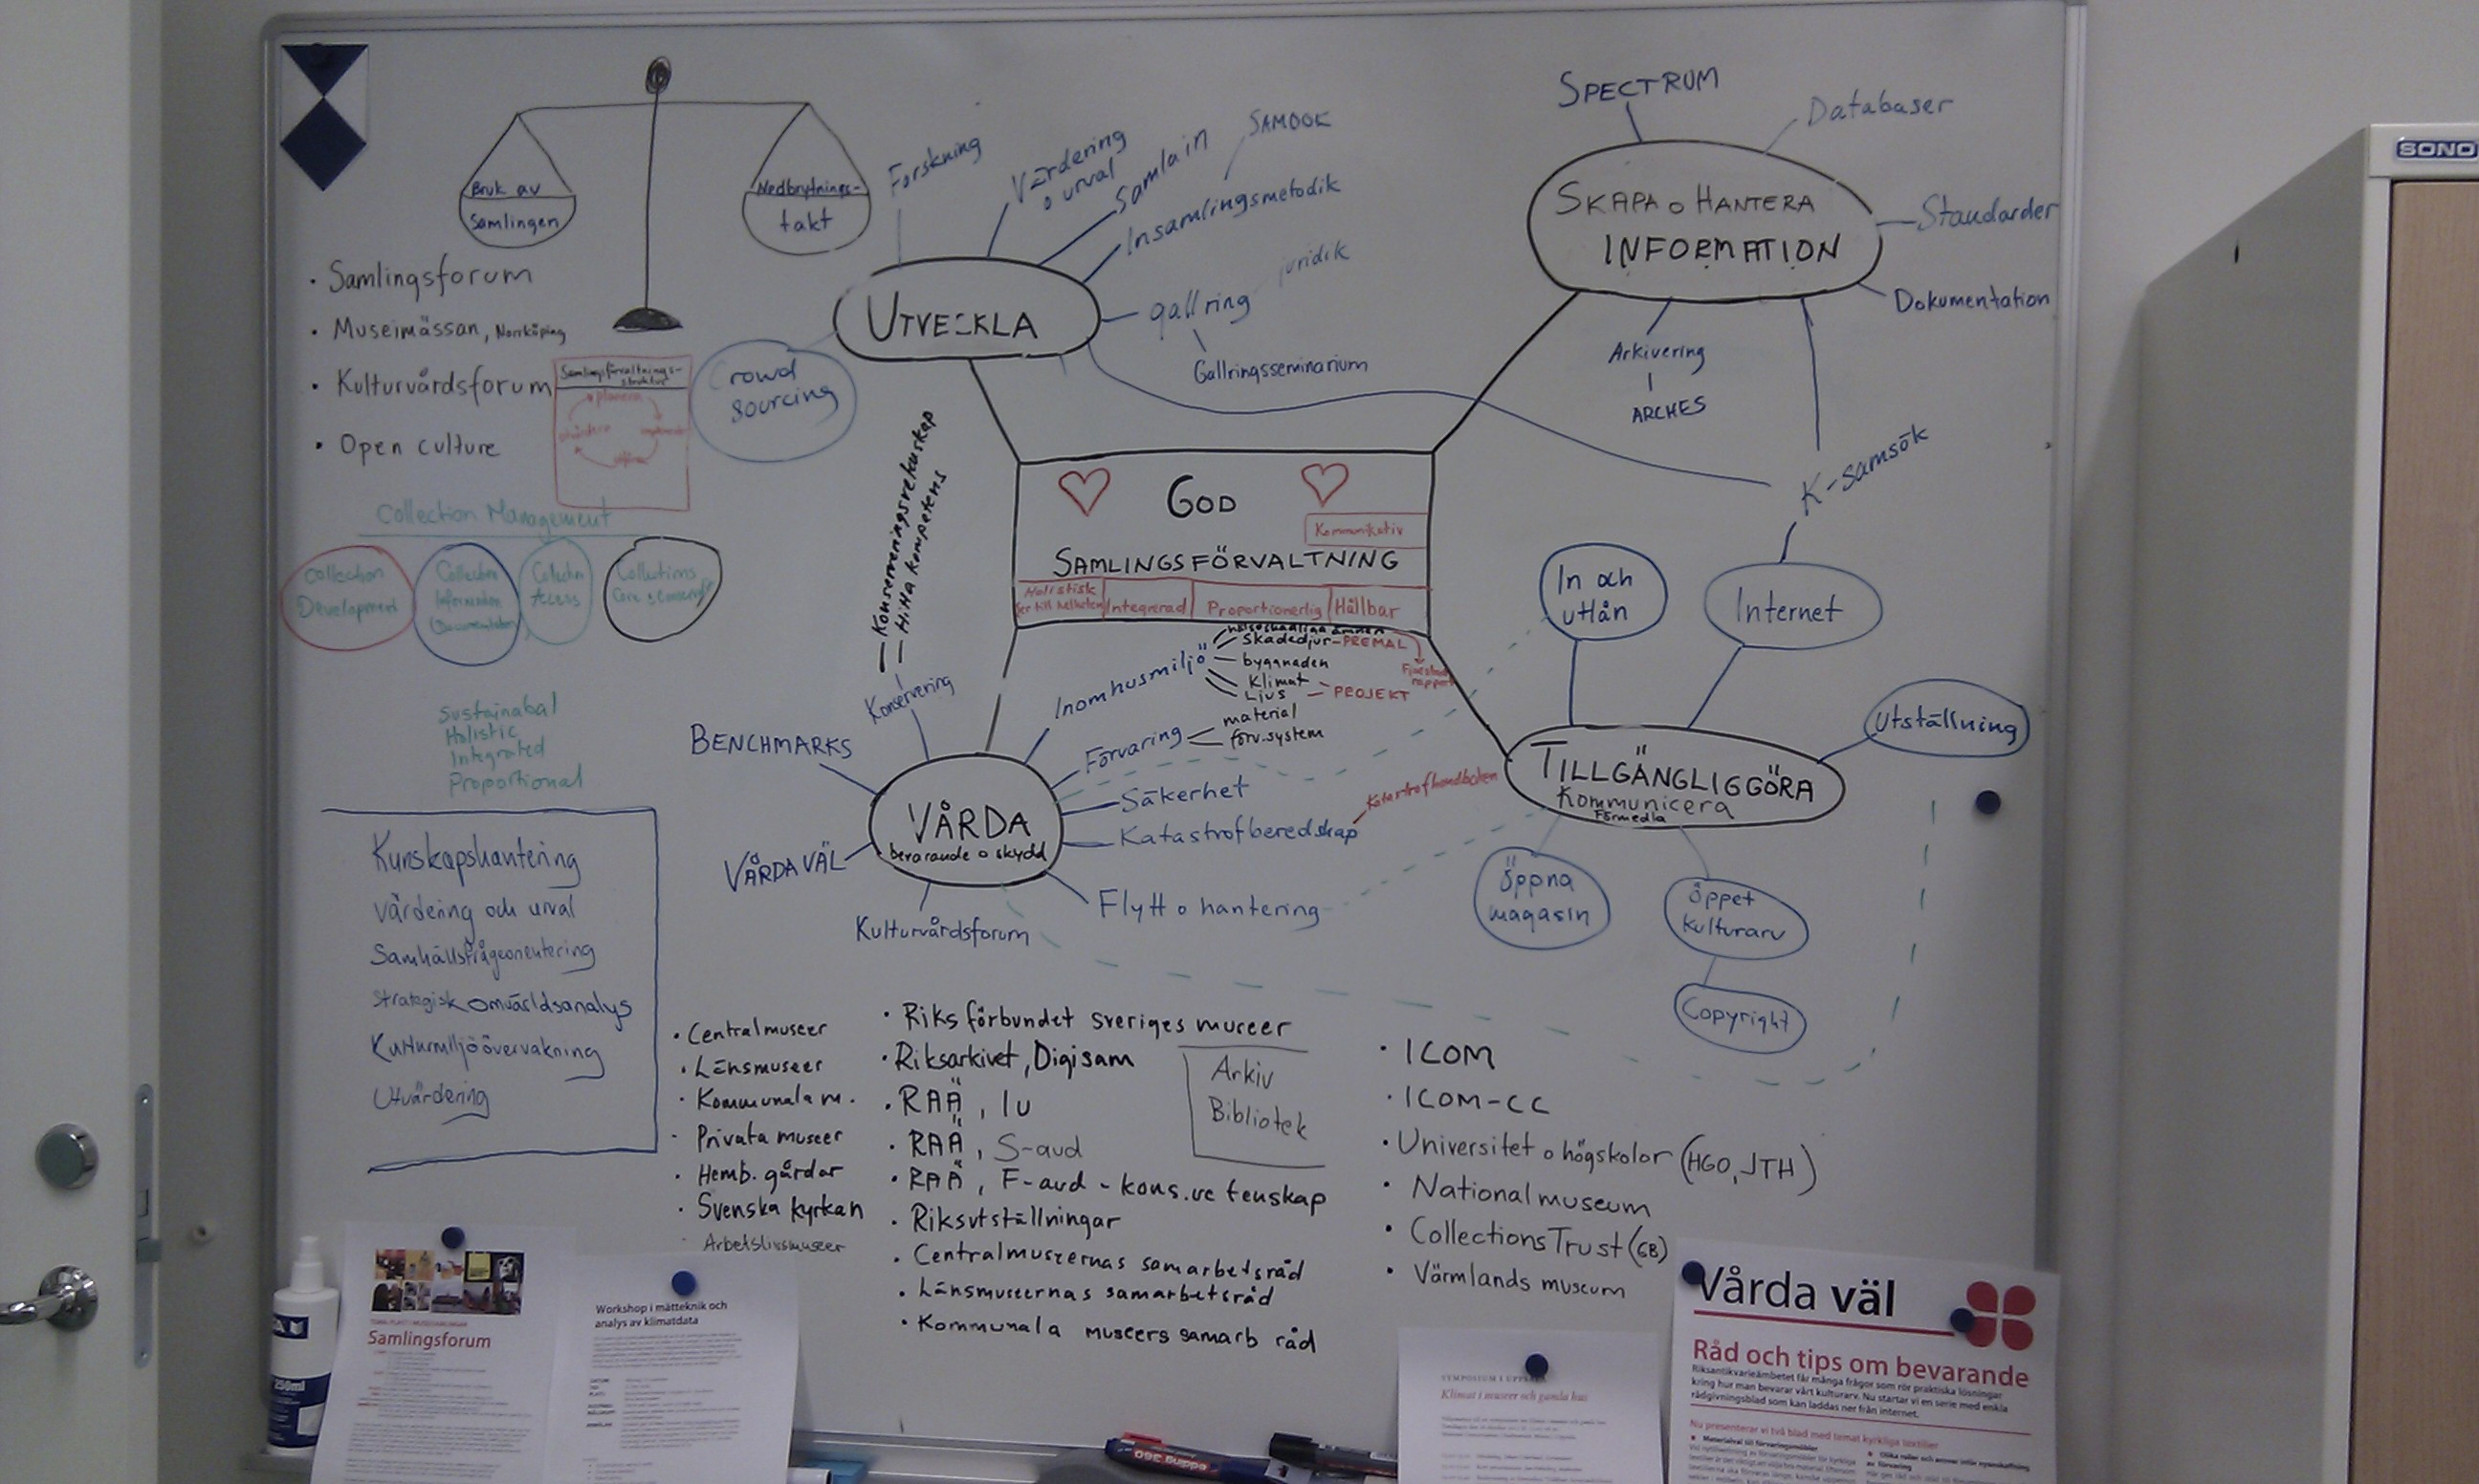 Bruk av
Samlingen
Nedbrytnings-
takt
• Samlingsforum
• Museimässan, Norrköping
• Kulturvårdsforum
• Open culture
Samlingsförvaltnings-
struktur
planera
Crowd
sourcing
Collection Management
Collection
Development
Collection
Information
(Documentation
Collection
Access
Collections
Care & Conserv
Sustainabal
Holistic
Integrated
Proportional
Kunskapshantering
Värdering och urval
Samhällsfrågeorientering
Strategisk omvärldsanalys
Kulturmiljöövervakning
Utvärdering
UTVECKLA
Forskning
Värdering
o urval
Samla in
Insamlingsmetodik
SAMDOK
gallring
juridik
Gallringsseminarium
SKAPA o HANTERA
INFORMATION
SPECTRUM
Databaser
Standarder
Dokumentation
Arkivering
ARCHES
K-samsök
GOD
Kommunikativ
SAMLINGSFÖRVALTNING
Holistisk
ser till helheten
Integrerad
Proportionerlig
Hållbar
In och
utlån
Internet
Utställning
TILLGÄNGLIGGÖRA
Kommunicera
Förmedla
öppna
magasin
öppet
kulturarv
Copyright
VÅRDA
bevarande o skydd
BENCHMARKS
VÅRDA VÄL
Kulturvårdsforum
Konservering
— Hitta kompetens
Inomhusmiljö
hälsoskadliga ämnen
skadedjur - PREMAL
byggnaden
Klimat
Ljus
PROJEKT
Förvaring
material
förv.system
Säkerhet
Katastrofberedskap
Katastrofhandboken
Flytt o hantering
• Centralmuseer
• Länsmuseer
• Kommunala m.
• Privata museer
• Hemb. gårdar
• Svenska kyrkan
• Arbetslivsmuseer
• Riksförbundet sveriges museer
• Riksarkivet, Digisam
• RAÄ, Iu
• RAÄ, S-avd
• RAÄ, F-avd - kons.vetenskap
• Riksutställningar
• Centralmuseernas samarbetsråd
• Länsmuseernas samarbetsråd
• Kommunala museers samarb råd
Arkiv
Bibliotek
• ICOM
• ICOM-CC
• Universitet o högskolor (HGO, JTH)
• Nationalmuseum
• Collections Trust (GB)
• Värmlands museum
SONO
250ml
Samlingsforum
Workshop i mätteknik och
analys av klimatdata
Klimat i museer och gamla hus
edding 360
Vårda väl
Råd och tips om bevarande
Riksantikvarieämbetet får många frågor som rör praktiska lösningar
kring hur man bevarar vårt kulturarv. Nu startar vi en serie med enkla
rådgivningsblad som kan laddas ner från internet.
Nu presenterar vi två blad med temat kyrkliga textilier